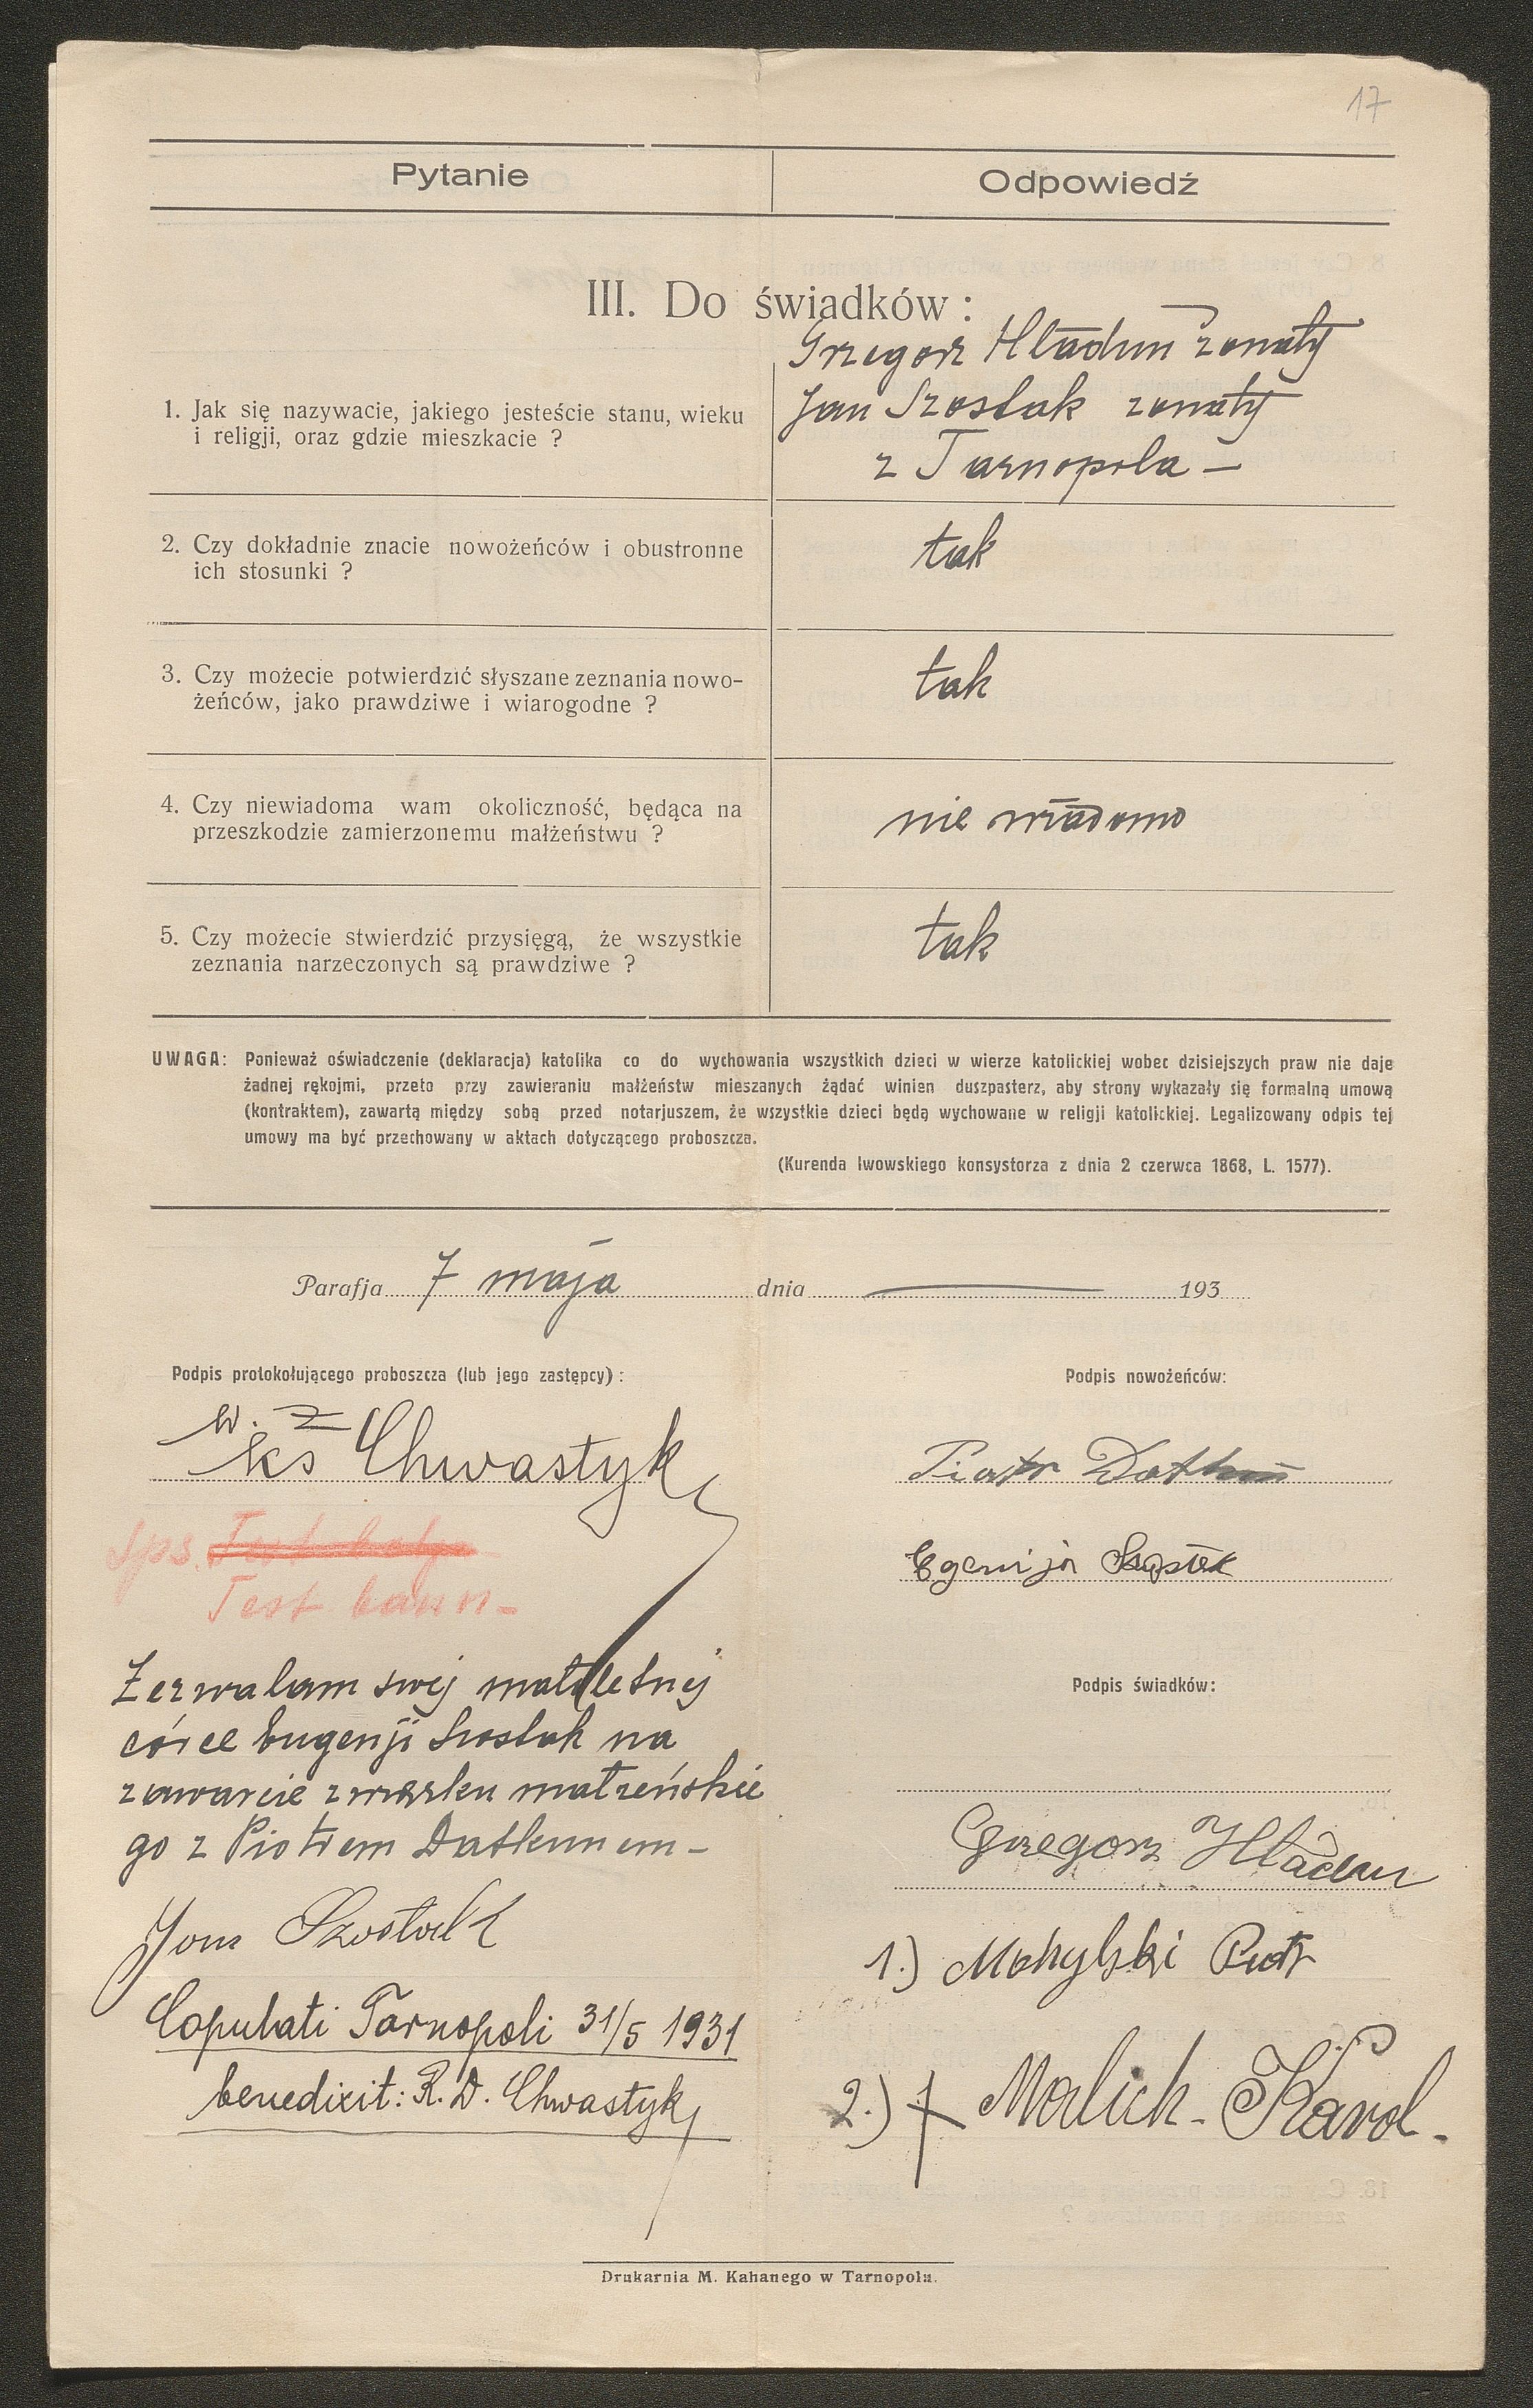 17
Pytanie
Odpowiedź
III. Do świadków :
Grzegorz Hładun żonaty
1. Jak się nazywacie, jakiego jesteście stanu, wieku
i religji, oraz gdzie mieszkacie ?
Jan Szostak żonaty
z Tarnopola –
2. Czy dokładnie znacie nowożeńców i obustronne
ich stosunki ?
tak
3. Czy możecie potwierdzić słyszane zeznania nowo-
żeńców, jako prawdziwe i wiarogodne ?
tak
4. Czy niewiadoma wam okoliczność, będąca na
przeszkodzie zamierzonemu małżeństwu ?
nie wiadomo
5. Czy możecie stwierdzić przysięgą, że wszystkie
zeznania narzeczonych są prawdziwe ?
tak
UWAGA: Ponieważ oświadczenie (deklaracja) katolika co do wychowania wszystkich dzieci w wierze katolickiej wobec dzisiejszych praw nie daje
żadnej rękojmi, przeto przy zawieraniu małżeństw mieszanych żądać winien duszpasterz, aby strony wykazały się formalną umową
(kontraktem), zawartą między sobą przed notarjuszem, że wszystkie dzieci będą wychowane w religji katolickiej. Legalizowany odpis tej
umowy ma być przechowany w aktach dotyczącego proboszcza.
(Kurenda lwowskiego konsystorza z dnia 2 czerwca 1868, L. 1577).
Parafja 7 maja dnia 193
Podpis protokołującego proboszcza (lub jego zastępcy) :
w. z
ks Chwastyk
Test bann-
Zezwalam swej małoletniej
córce Eugenji Szostak na
zawarcie związku małżeńskie
go z Piotrem Datkunem –
Jan Szostak
Copulati Tarnopoli 31/5 1931
benedixit: R. D. Chwastyk
Podpis nowożeńców:
Piotr Datkun
Egenija
Podpis świadków:
Grzegorz Hładun
1.) Mohylski Piotr
2.) Malick - Karol -
Drukarnia M. Kahanego w Tarnopolu.